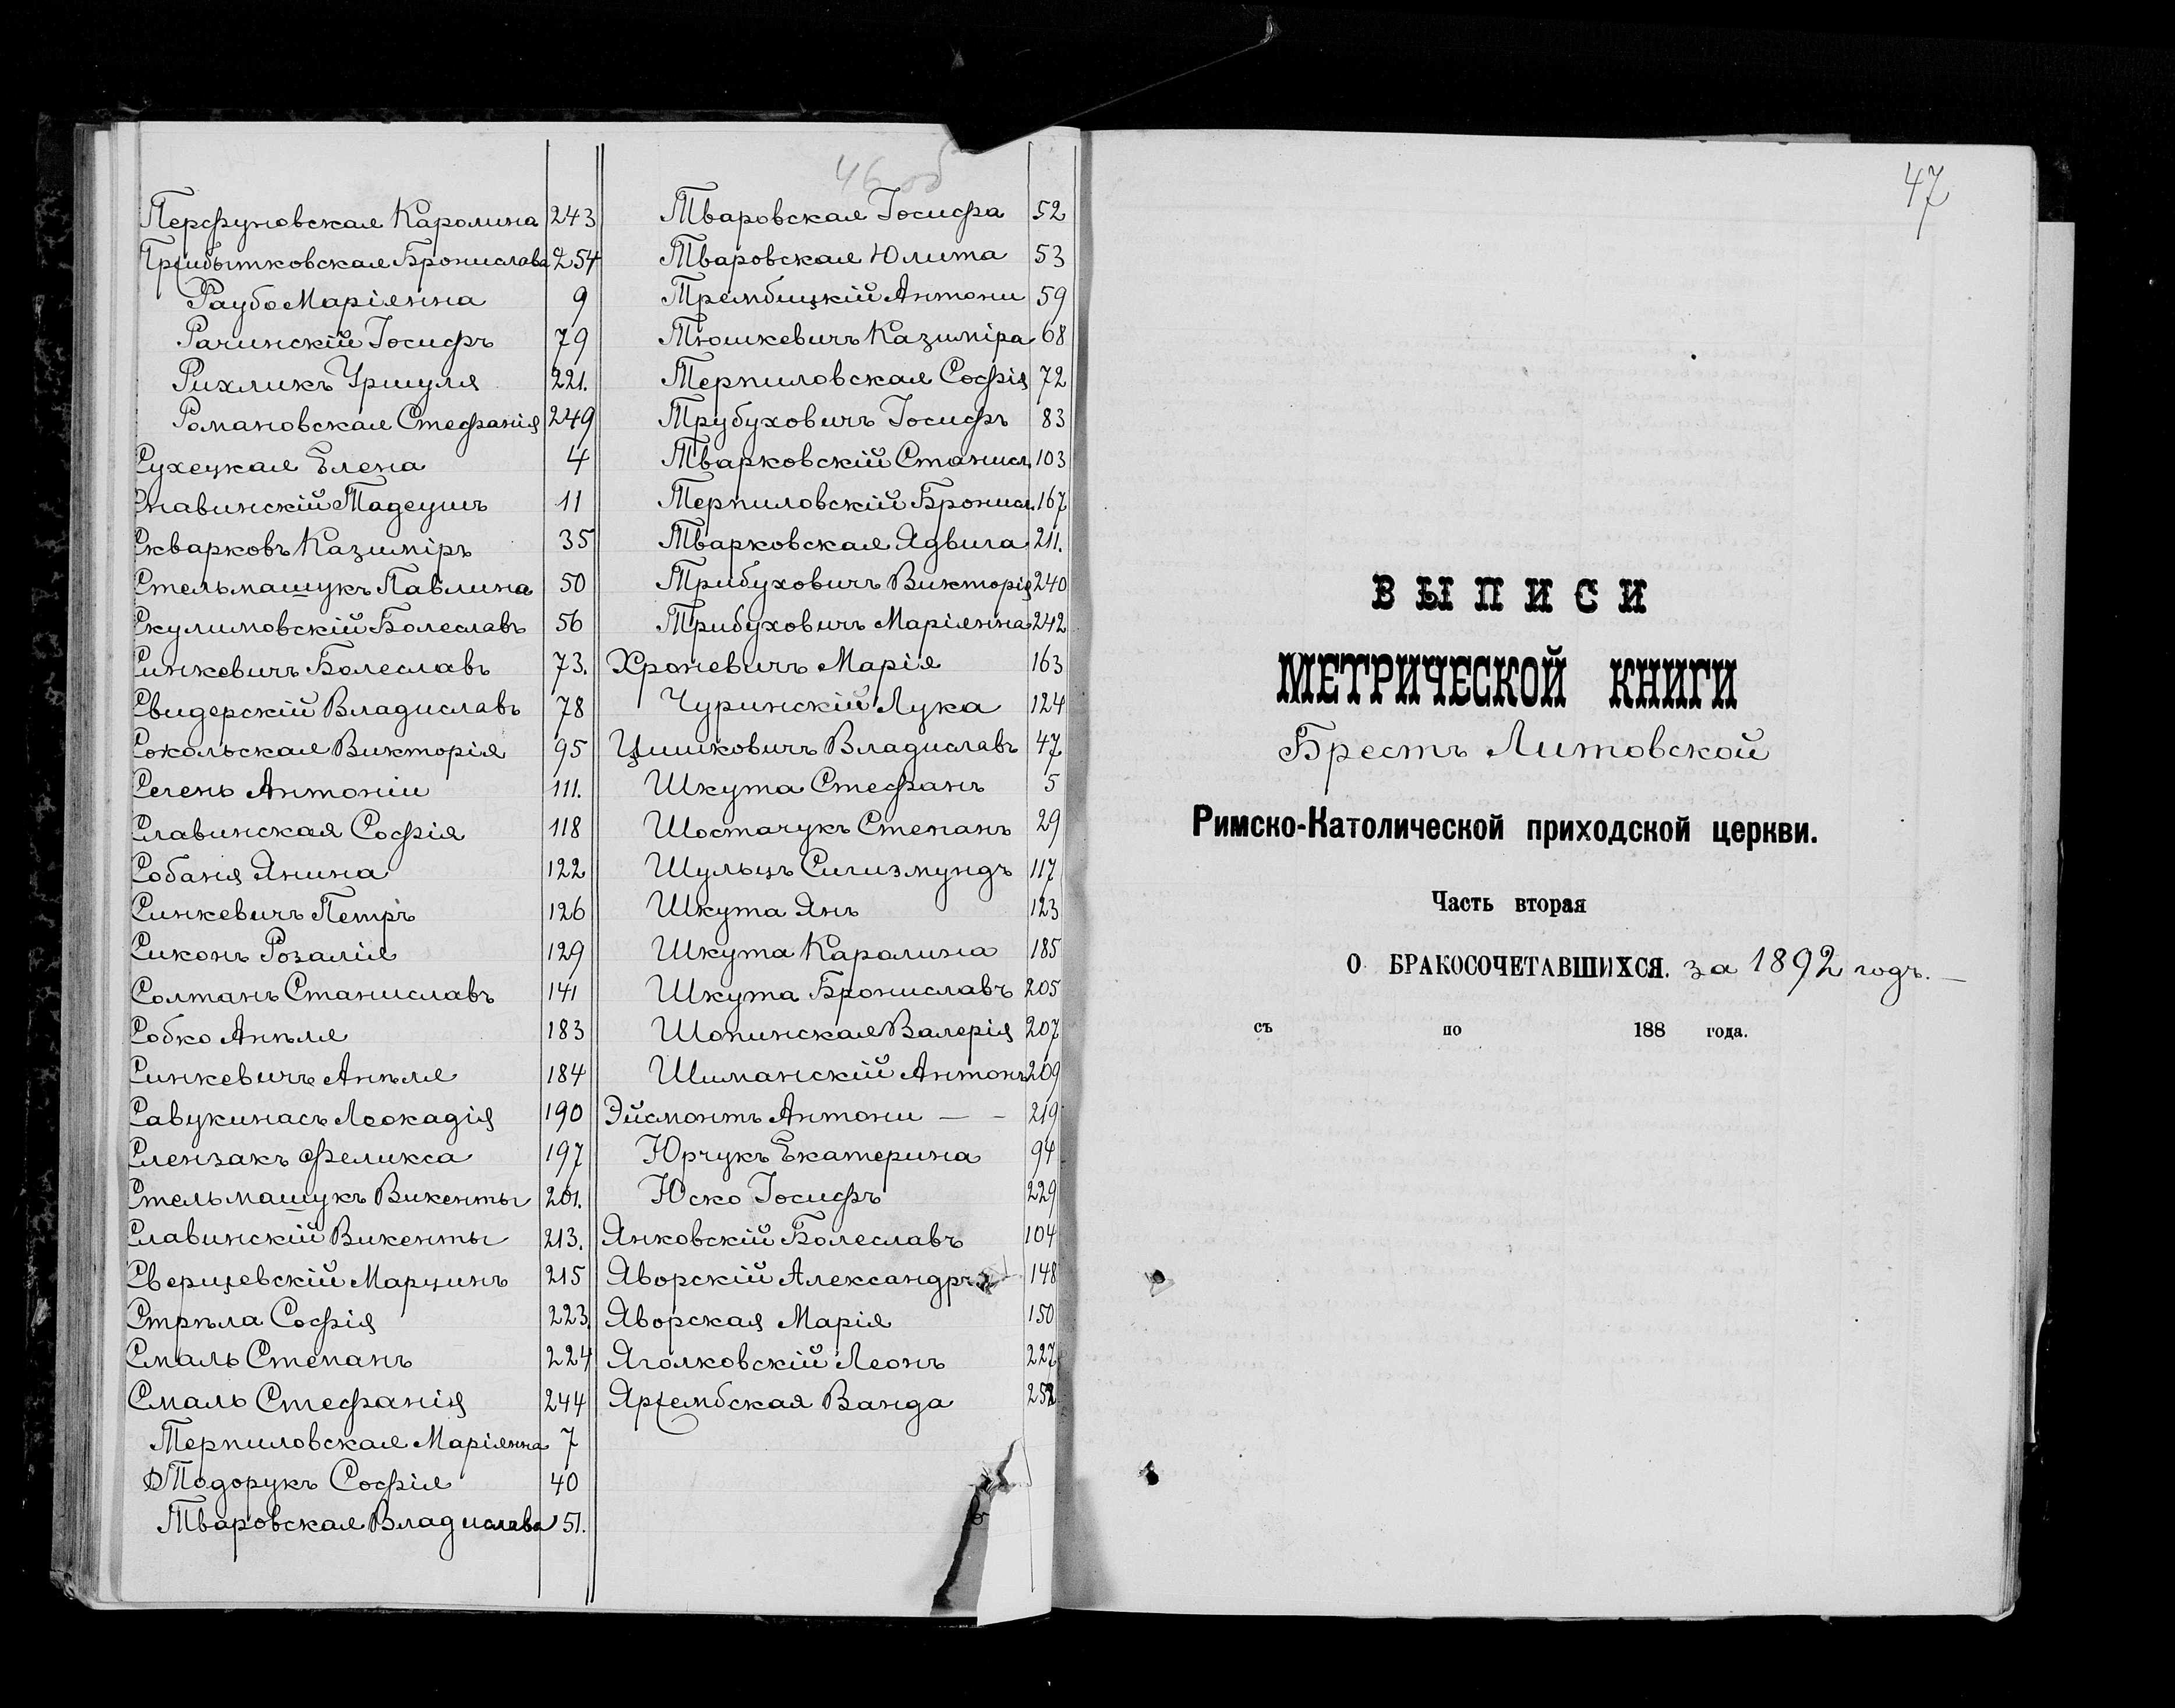 46 об
Перфуновская Каролина 243
Прғибытковская Бронислава 254
Раубо Маріянна 9
Рачинскій Іосифъ 79
Рихликъ Уршуля 221.
Романовская Стефанія 249
Сухецкая Елена 4
Славинскій Тадеушъ 11
Скварковъ Казиміръ 35
Стельмашукъ Павлина 50
Скулимовскій Болеславъ 56
Синкевичъ Болеславъ 73.
Свидерскій Владиславъ 78
Сокольская Викторія 95
Селень Антоніи 111.
Славинская Софія 118
Собаня Янина 122
Синкевичъ Петръ 126
Сиконъ Розалія 129
Солтанъ Станиславъ 141
Собко Анѣля 183
Синкевичъ Анѣля 184
Савукинасъ Леокадія 190
Слензакъ Феликса 197
Стельмашукъ Викенты 201.
Славинскій Викенты 213.
Сверщевскій Марцинъ 215
Стрѣла Софія 223.
Смаль Степанъ 224
Смаль Стефанія 244
Терпиловская Маріянна 7
Тодорукъ Софія 40
Тваровская Владислава 51.
Тваровская Іосифа 52
Тваровская Юлита 53
Трембицкій Антони 59
Тюшкевичъ Казиміра 68
Терпиловская Софія 72
Трубуховичъ Іосифъ 83
Тварковскій Станисл. 103
Терпиловскій Бронисл. 167
Тварковская Ядвига 211.
Трибуховичъ Викторія 240
Трибуховичъ Маріянна 242
Хроневичъ Марія 163
Чуринскій Лука 124
Цишковичъ Владиславъ 47
Шкута Стефанъ 5
Шостачукъ Степанъ 29
Шульцъ Сигизмундъ 117
Шкута Янъ 123
Шкута Каролина 185
Шкута Брониславъ 205
Шопинская Валерія 207
Шиманскій Антонъ 209
Эйсмонтъ Антони — - 219
Юрчукъ Екатерина 94
Юско Іосифъ 229
Янковскій Болеславъ 104
Яворскій Александръ 148
Яворская Марія 150
Яголковскій Леонъ 227
Ярғембская Ванда 252
47
ВЫПИСИ
МЕТРИЧЕСКОЙ КНИГИ
Брестъ Литовской
Римско-Католической приходской церкви.
Часть вторая
О БРАКОСОЧЕТАВШИХСЯ. за 1892 годъ. —
съ по 188 года.